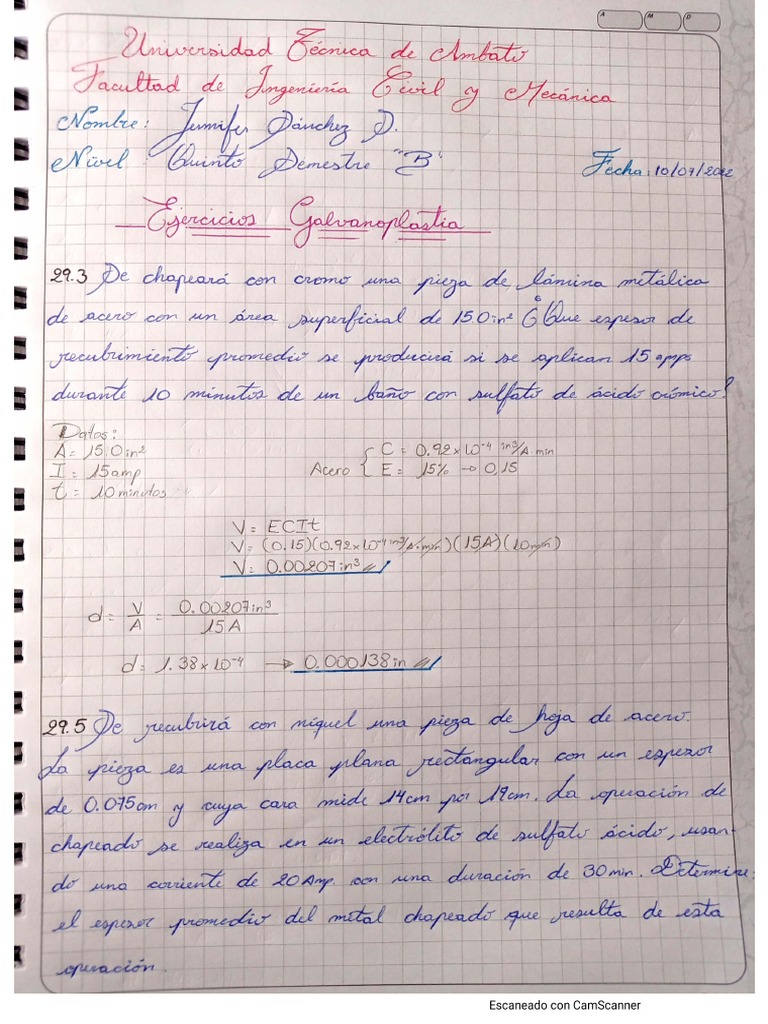 A M D
Universidad Técnica de Ambato
Facultad de Ingeniería Civil y Mecánica
Nombre: Jennifer Sánchez D.
Nivel : Quinto Semestre "B"
Fecha: 10/07/2022
Ejercicios Galvanoplastia
29.3 Se chapeará con cromo una pieza de lámina metálica
de acero con un área superficial de 15.0in² ¿Que espesor de
recubrimiento promedio se producirá si se aplican 15 amps
durante 10 minutos de un baño con sulfato de ácido crómico?
Datos:
A= 15.0in²
I= 15amp
t= 10minutos
Acero { C = 0.92x10⁻⁴ in³/A.min
E= 15% → 0,15
V= ECIt
V= (0.15)(0.92x10⁻⁴ in³/A.min)(15A)(10min)
V= 0.00207in³
d= V/A = 0.00207in³/15A
d= 1.38x10⁻⁴ → 0.000138in
29.5 Se recubrirá con níquel una pieza de hoja de acero.
La pieza es una placa plana rectangular con un espesor
de 0.075cm y cuya cara mide 14cm por 19cm. La operación de
chapeado se realiza en un electrólito de sulfato ácido, usan-
do una corriente de 20Amp. con una duración de 30min. Determine:
el espesor promedio del metal chapeado que resulta de esta
operación.
Escaneado con CamScanner